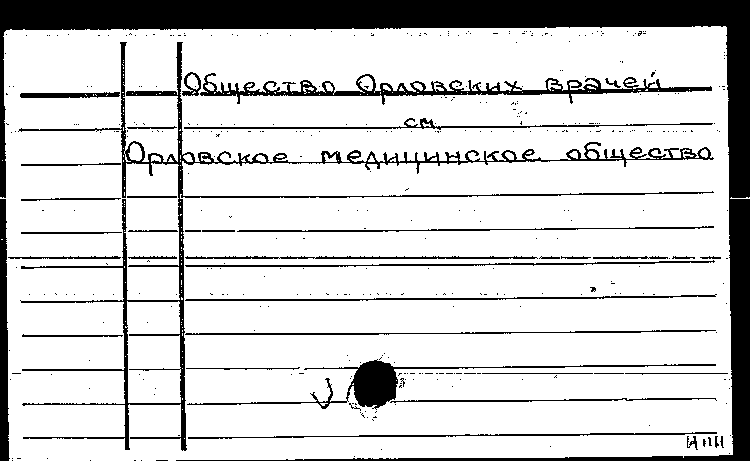 Общество Орловских врачей
см.
Орловское медицинское общество